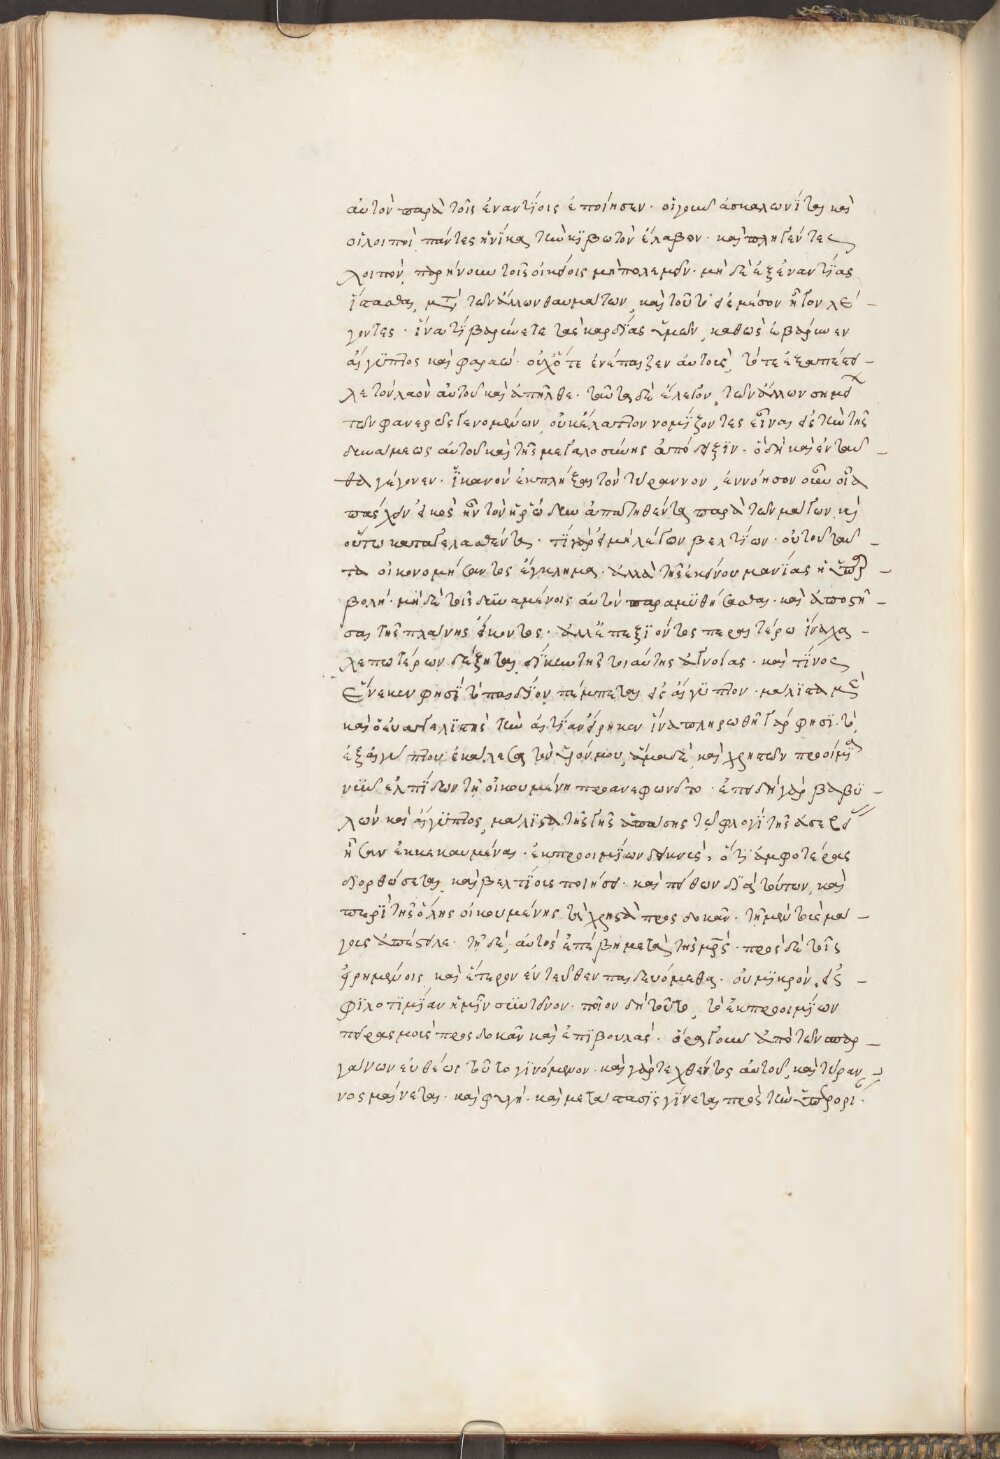 αὐτὸν παρὰ τοῖς ἐναντίοις ἐποίησεν· οἱ γοῦν ἀσκαλωνῖται καὶ
οἱ λοιποὶ πάντες ἡνίκα τὴν κιβωτὸν ἔλαβον· καὶ πληγέντες
λοιπὸν, παρήνουν τοῖς οἰκείοις μὴ πολεμεῖν· μὴ δὲ ἐξεναντίας
ἵστασθαι, μετὰ τῶν ἄλλων θαυμάτων, καὶ τοῦτο εἰς μέσον ἦγον λέ–
γοντες· ἵνα τί βαρύνετε τὰς καρδίας ὑμῶν, καθὼς ἐβάρυνεν
αἴγυπτος καὶ φαραώ· οὐχ ὅτε ἐνέπαιξεν αὐτοῖς, τότε ἐξαπέστει–
λε τὸν λαὸν αὐτοῦ καὶ ἀπῆλθε· ταῦτα δὲ ἔλεγον, τῶν ἄλλων σημείων
τῶν φανερῶς γενομένων, οὐκ ἔλαττον νομίζοντες εἶναι εἰς τὴν τῆς
δυνάμεως αὐτοῦ καὶ τῆς μεγαλοσύνης ἀπόδειξιν· ὃ δὴ καὶ ἐνταῦ–
θα γέγονεν· ἱκανὸν ἐκπλῆξαι τὸν τύραννον, ἐννόησον οὖν οἷα
πάσχειν εἰκὸς ἦν τὸν ἡρώδην ἀπατηθέντα παρὰ τῶν μάγων, καὶ
οὕτω καταγελασθέντα· τί γὰρ εἰ μὴ γέγονε βελτίων· οὐ τοῦ ταῦ–
τα οἰκονομήσαντος ἔγκλημα· ἀλλὰ τῆς ἐκείνου μανίας ἡ ὑπερ–
βολή· μὴ δὲ τοῖς δυναμένοις αὐτὸν παραμυθήσασθαι· καὶ ἀποστῆ–
σαι τῆς πλάνης εἴκοντος· ἀλλ' ἐπεξιόντος περαιτέρω ἵνα χα–
λεπωτέρων δέξηται, δίκην τῆς τοιαύτης ἀνοίας· καὶ τίνος
ἕνεκεν φησὶ τὸ παιδίον πέμπεται εἰς αἴγυπτον· μάλιστα μὲν
καὶ ὁ εὐαγγελιστὴς τὴν αἰτίαν εἴρηκεν ἵνα πληρωθῇ γάρ φησι· τὸ
ἐξ αἰγύπτου ἐκάλεσα τὸν υἱόν μου, ἅμα δὲ, καὶ χρηστῶν προοίμια
νῦν ἐλπίδων τῇ οἰκουμένῃ προανεφωνεῖτο· ἐπειδὴ γὰρ βαβυ–
λὼν καὶ αἴγυπτος, μάλιστα τῆς γῆς ἁπάσης τῇ φλογὶ τῆς ἀσεβείας
ἦσαν ἐκκεκαυμέναι· ἐκ προοιμίων δεικνὺς, ὅτι ἀμφοτέρας
διορθώσεται, καὶ βελτίους ποιήσει· καὶ πείθων διὰ τούτων, καὶ
περὶ τῆς ὅλης οἰκουμένης τὰ χρηστὰ προσδοκᾶν· τῇ μὲν τοὺς μά–
γους ἀπέστειλε· τῇ δὲ, αὐτὸς ἐπέβη μετὰ τῆς μητρός· πρὸς δὲ τοῖς
εἰρημένοις, καὶ ἕτερον ἐντεῦθεν παιδευόμεθα· οὐ μικρὸν, εἰς –
φιλοτιμίαν ἡμῖν συντεῖνον· ποῖον δὴ τοῦτο, τὸ ἐκ προοιμίων
πειρασμοὺς προσδοκᾶν καὶ ἐπιβουλάς· ὅρα γοῦν ἀπὸ τῶν σπαρ–
γάνων εὐθέως τοῦτο γινόμενον· καὶ γὰρ τεχθέντος αὐτοῦ, καὶ τύραν–
νος μαίνεται· καὶ φυγή· καὶ μετάστασις γίνεται πρὸς τὴν ὑπερορί·